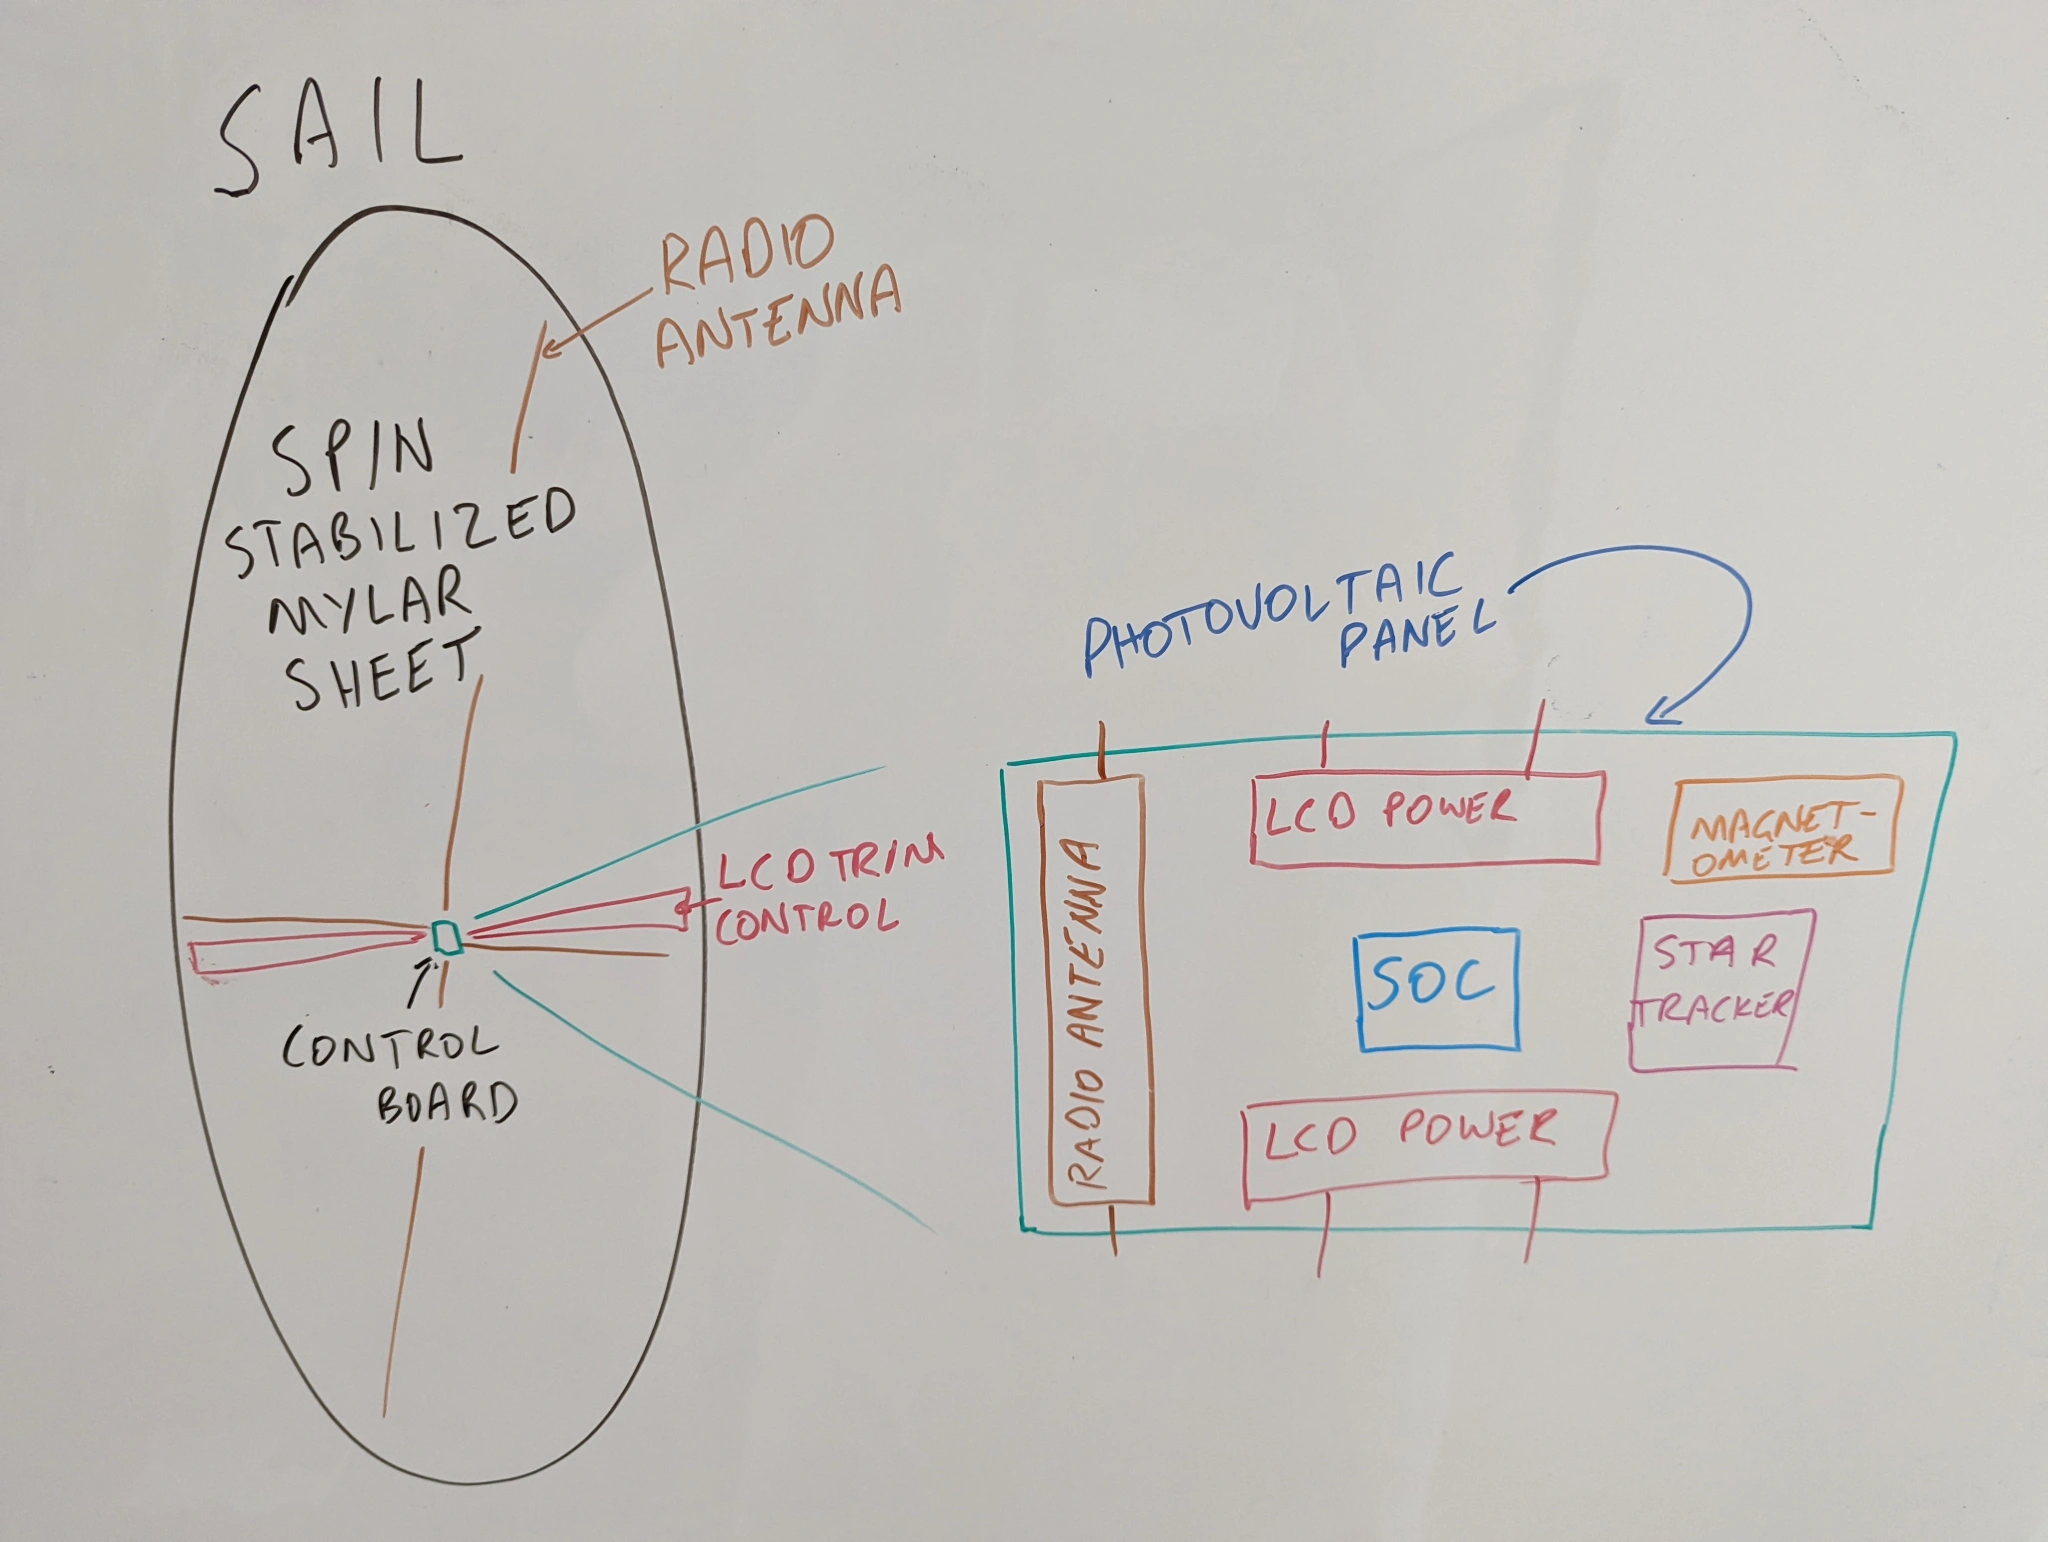 SAIL
RADIO
ANTENNA
SPIN
STABILIZED
MYLAR
SHEET
LCD TRIM
CONTROL
CONTROL
BOARD
PHOTOVOLTAIC
PANEL
RADIO ANTENNA
LCD POWER
MAGNET-
OMETER
SOC
STAR
TRACKER
LCD POWER